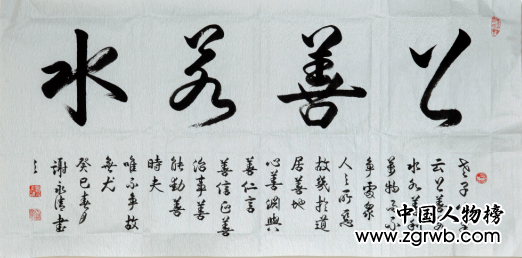 上善若水
老子
云上善若
水水善利
萬物而不
爭處衆
人之所惡
故幾於道
居善地
心善淵與
善仁言
善信正善
治事善
能動善
時夫
唯不爭故
無尤
癸巳春月
謝永清書
中国人物榜
www.zgrwb.com